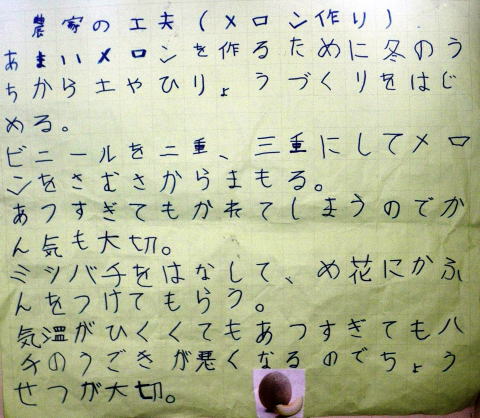 農家の工夫(メロン作り)
あまいメロンを作るために冬のう
ちから土やひりょうづくりをはじ
める。
ビニールを二重、三重にしてメロ
ンをさむさからまもる。
あつすぎてもかれてしまうのでか
ん気も大切。
ミツバチをはなして、め花にかふ
んをつけてもらう。
気温がひくくてもあつすぎても八
チのうごきが悪くなるのでちょう
せつが大切。